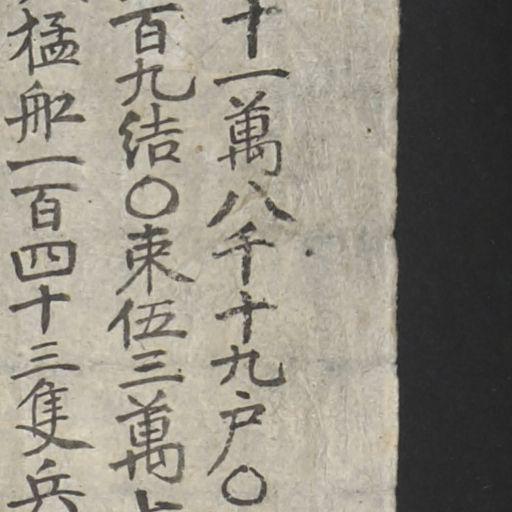 十一萬八千十九戶〇
百九結〇束伍三萬
猛船一百四十三隻兵